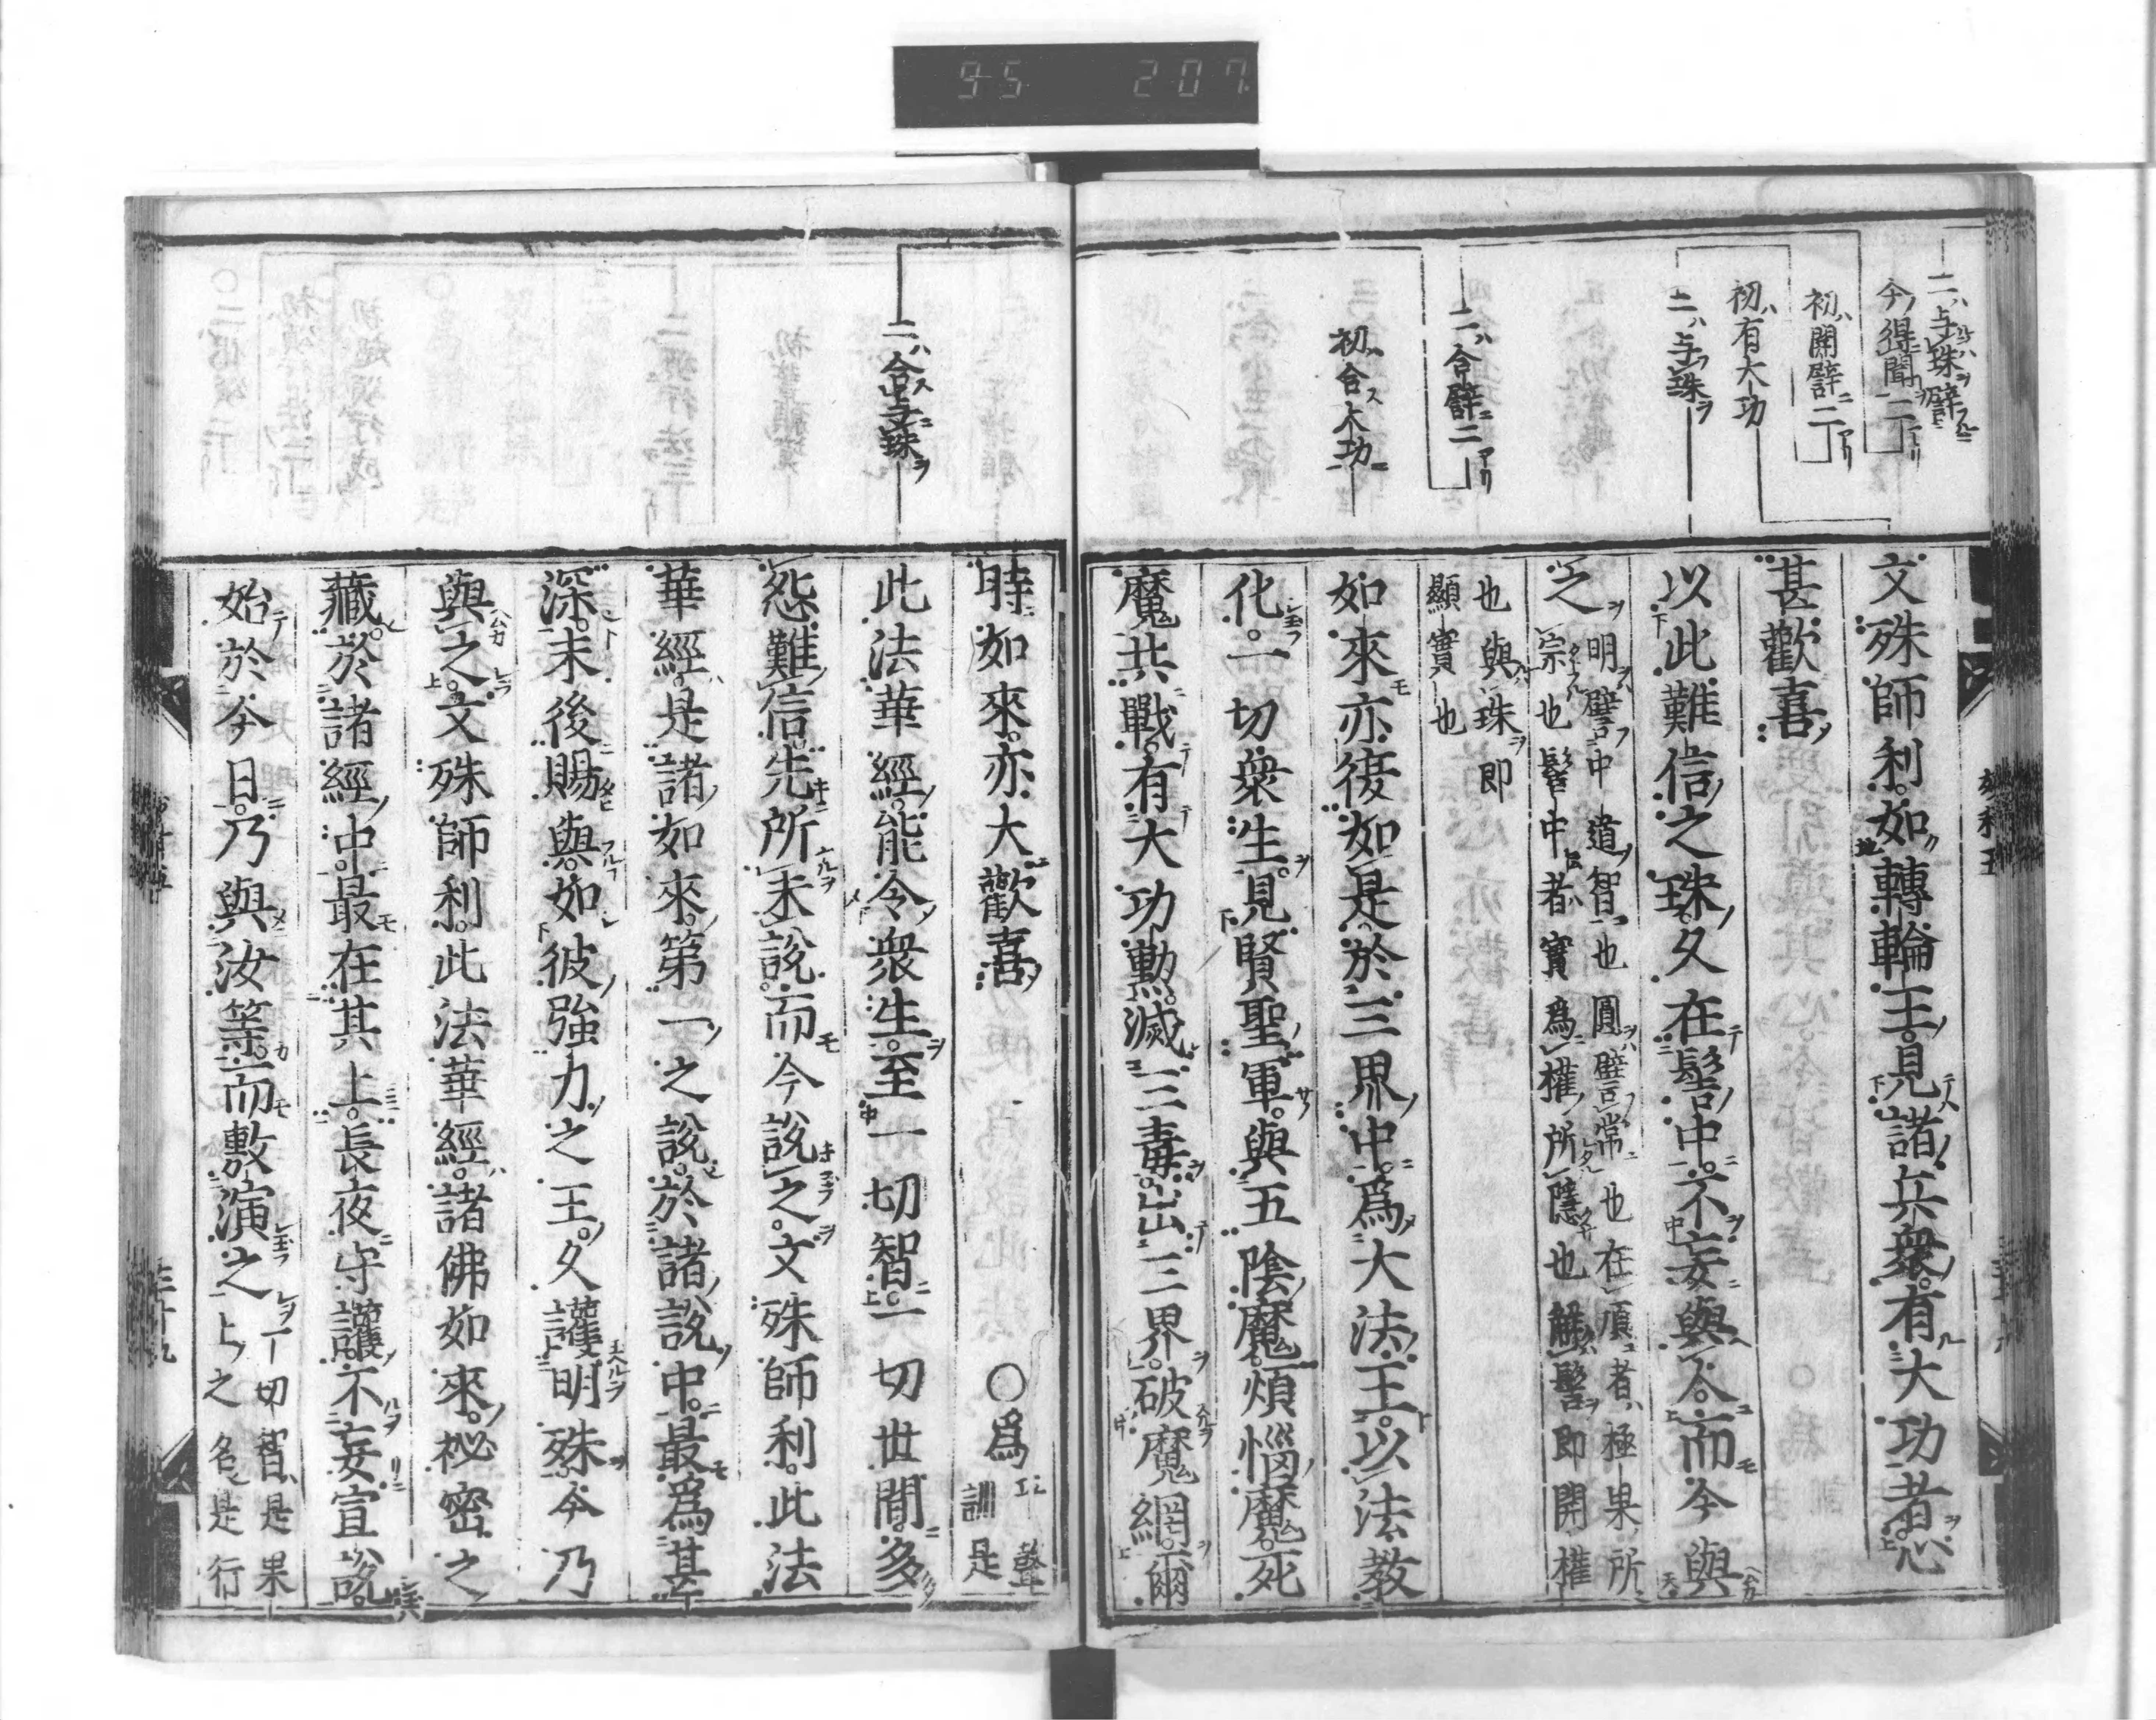 95 207
二ハ与珠ヲ譬
今得聞二アリ
初ハ開譬二アリ
初ハ有大功
二ハ与珠ヲ
二ハ合譬二アリ
初ハ合大功
文殊師利。如轉輪王。見諸兵衆。有大功者。心
甚歡喜
以此難信之珠。久在髻中。不妄與人。而今與
之
明譬中道智也圓譬常也在頂者極果所
宗也髻中者實爲權所隱也解髻即開權
也與珠即
顯實也
如來亦復如是。於三界中。爲大法王。以法教
化。一切衆生。見賢聖軍。與五陰魔。煩惱魔。死
魔共戰。有大功勲。滅三毒。出三界。破魔網。爾
二ハ合与珠ヲ
時如來。亦大歡喜
○爲
訓是
此法華經。能令衆生。至一切智。一切世間。多
怨難信。先所未說。而今說之。文殊師利。此法
華經。是諸如來。第一之說。於諸說中。最爲甚
深。末後賜與。如彼強力之王。久護明珠。今乃
與之。文殊師利。此法華經。諸佛如來。祕密之
藏。於諸經中。最在其上。長夜守護。不妄宣說。
始於今日。乃與汝等。而敷演之
一切智是果
上之名是行